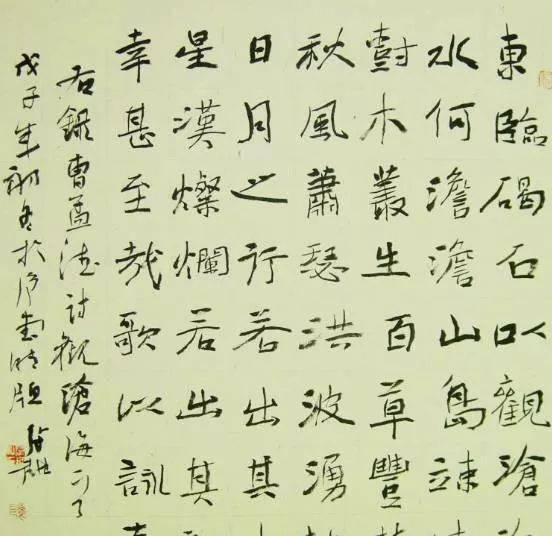 東臨碣石以觀滄
水何澹澹山島竦
樹木叢生百草豐
秋風蕭瑟洪波湧
日月之行若出其
星漢燦爛若出其
幸甚至哉歌以詠
右錄曹孟德詩觀滄海一首
戊子年初冬於